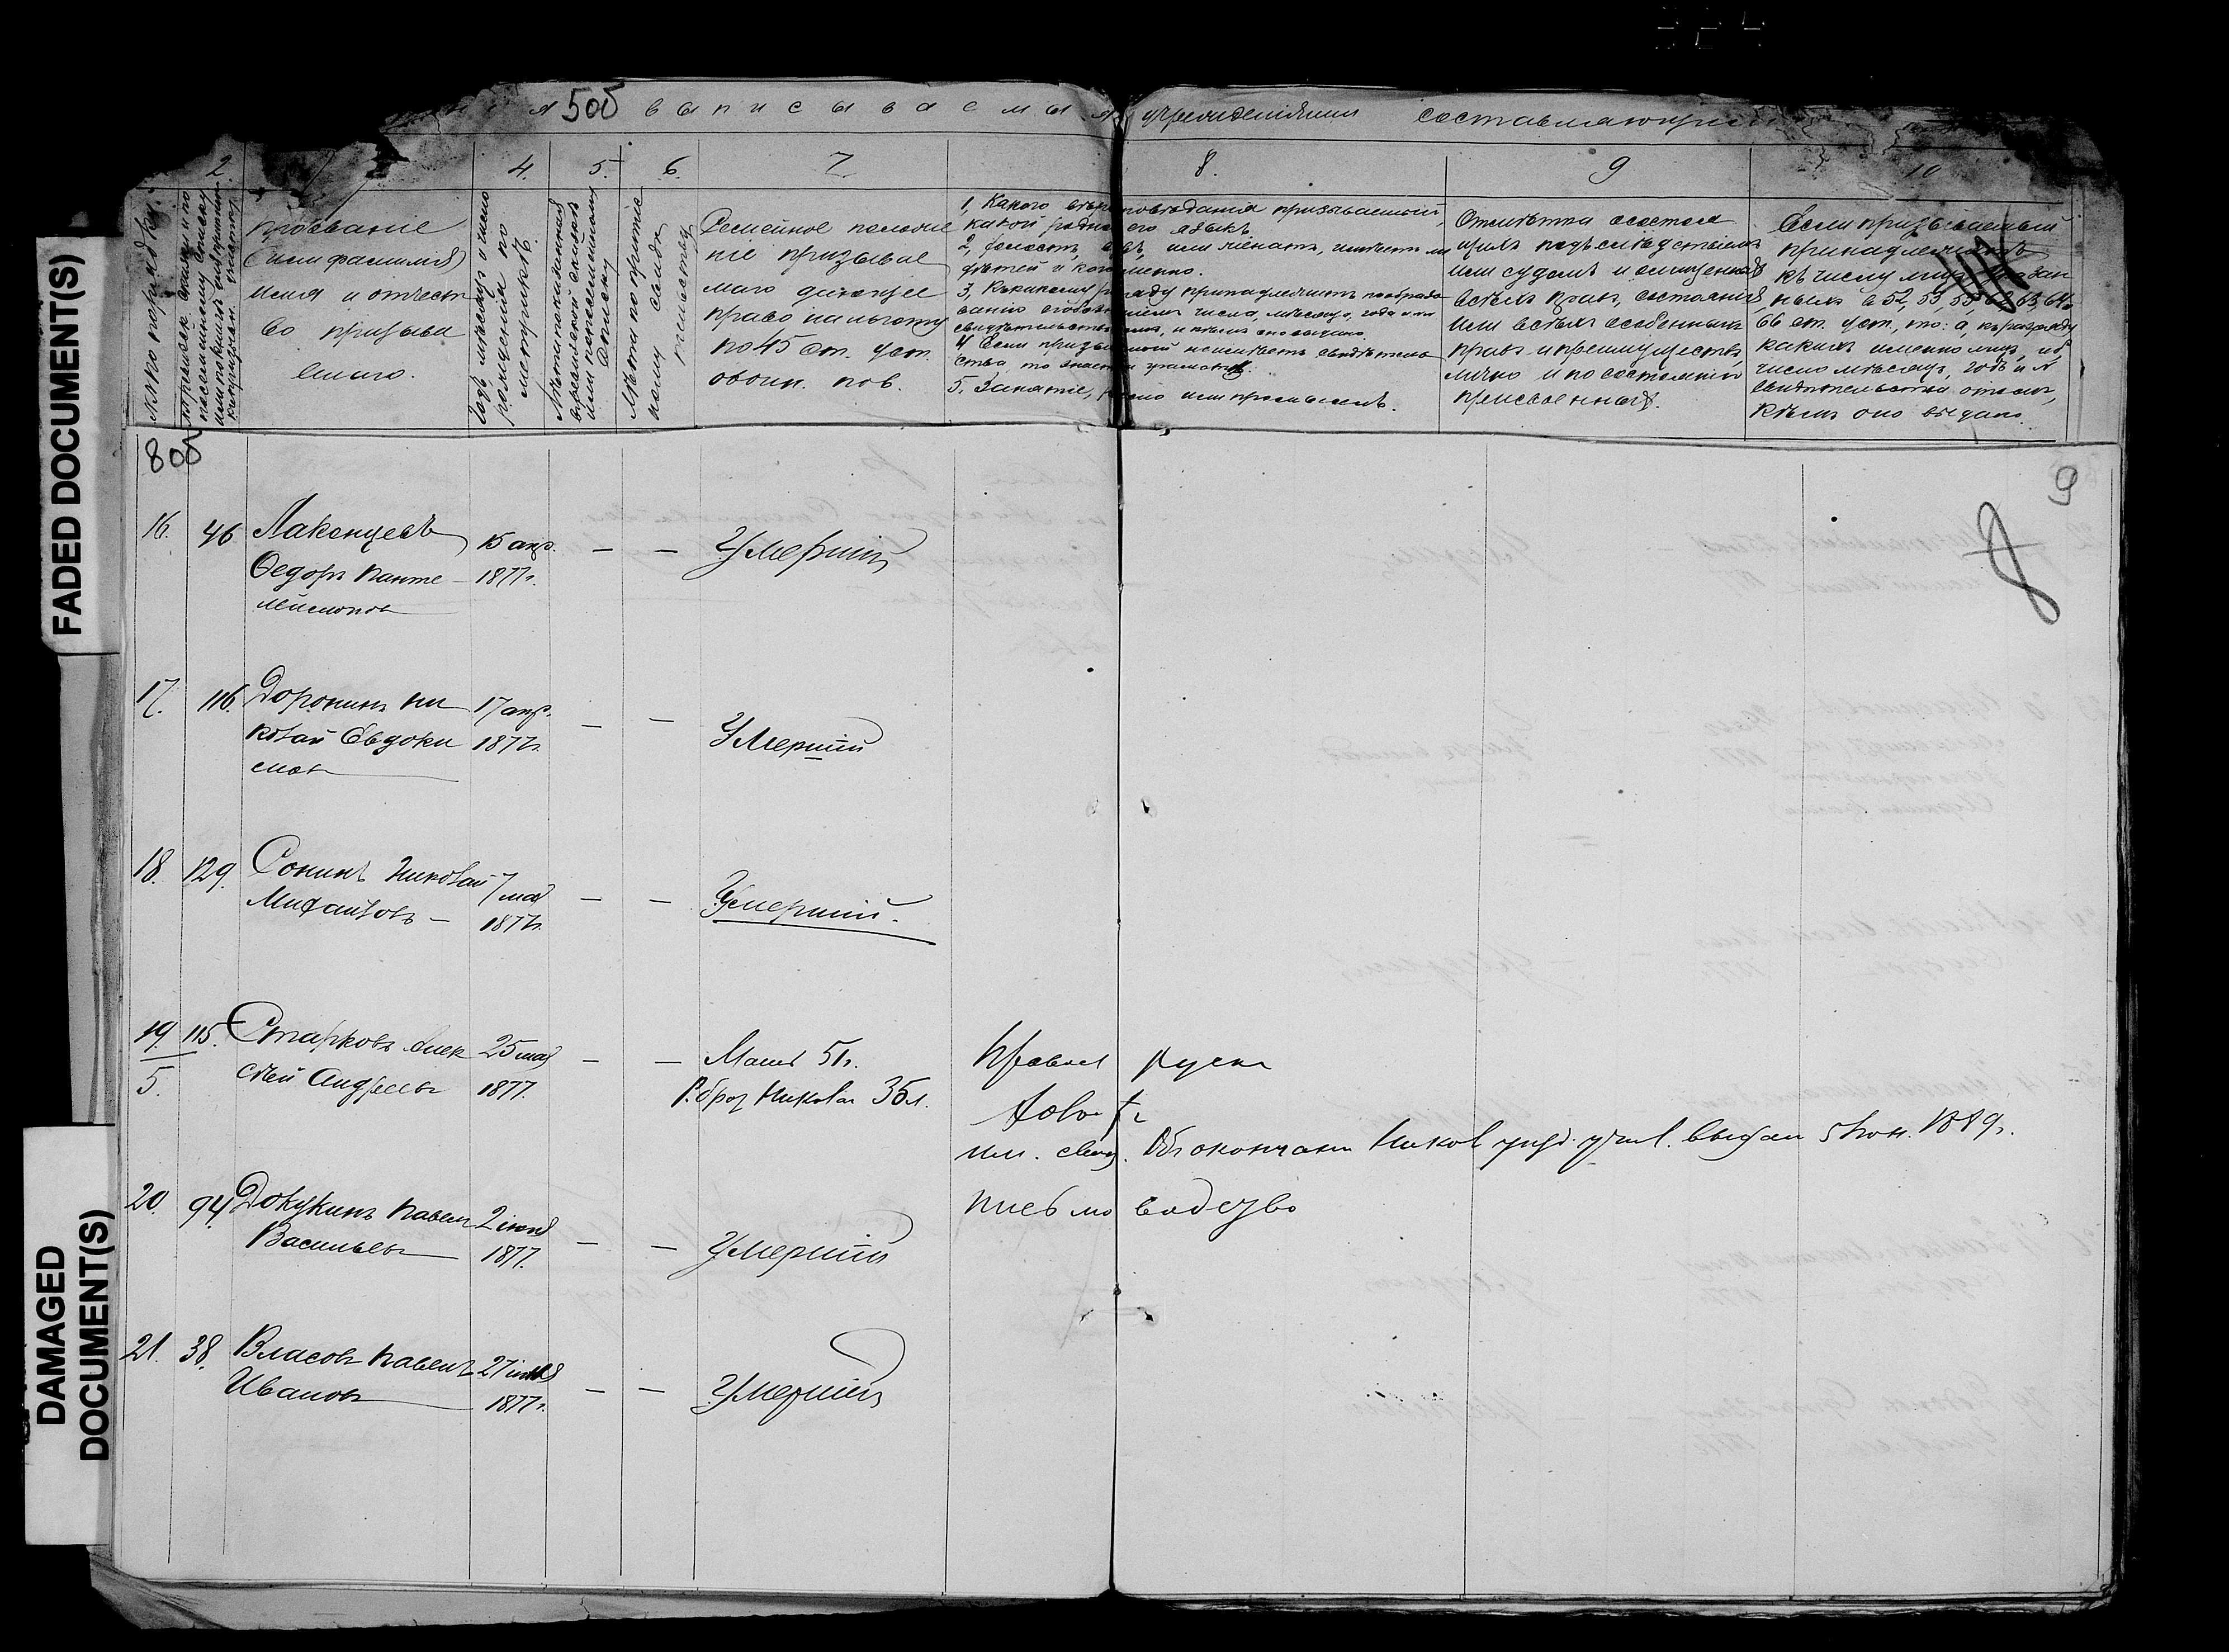 FADED DOCUMENT(S)
DAMAGED DOCUMENT(S)
505 выписываемыя учрежденіями составляющими
2. 4. 5. 6. 7. 8. 9 10
№ по порядку.
Прозваніе
(или фамилія)
имя и отчест
во призыва
емаго.
Годъ мѣсяцъ и число
рожденія по
метрикѣ.
Лѣта по наружному виду
Семейное положе
ніе призывае
маго дающее
право на льготу
по 45 ст. Уст.
о воин. пов.
1, Какого вѣроисповѣданія призываемый,
какой родной его языкъ.
2, Холостъ, вдовъ, или женатъ, имѣетъ ли
дѣтей и кого именно.
3, Къ какому разряду принадлежитъ по образо
ванію числа, мѣсяца, года и №
свидѣтельства и кѣмъ оно выдано.
4 Если призываемый не имѣетъ свидѣтель
ства, то знаетъ ли грамотѣ.
5. Занятіе, ремесло или промыселъ.
Отмѣтка о состоя
щихъ подъ слѣдствіемъ
или судомъ и лишенныхъ
всѣхъ правъ состоянія
или всѣхъ особенныхъ
правъ и преимуществъ,
лично и по состоянію
присвоенныхъ.
Если призываемый
принадлежитъ
къ числу лицъ указан
ныхъ въ 52, 53, 55, 62, 63, 64 и
66 ст. Уст., то: а, къ разряду
какихъ именно лицъ, и б,
число мѣсяцъ, годъ и №
свидѣтельства
кѣмъ оно выдано.
805
9
8
16. 46 Лаконцевъ 15 апр. — — Умершій
Ѳедоръ Панте — 1877 г.
леймоновъ
17. 116. Доронинъ Ни 17 апр. — — Умершій
колай Евдоки 1877 г.
мовъ
18. 129. Сонинъ Николай 7 мая — — Умершій.
Михайловъ — 1877 г.
19. 115. Старковъ Алек 25 мая — — Мать 51 г. Правосл русск
5. сѣй Андреевъ 1877. Р. брат Николай 35 л.
Холост
им. свид. Объ окончани Никол училищ. выдан 5 Іюн. 1889 г.
письмоводство
20. 94. Докукинъ Павелъ 2 іюня — — Умершій
Васильевъ 1877.
21. 38. Власовъ Павелъ 27 іюня — — Умершій
Ивановъ 1877 г.